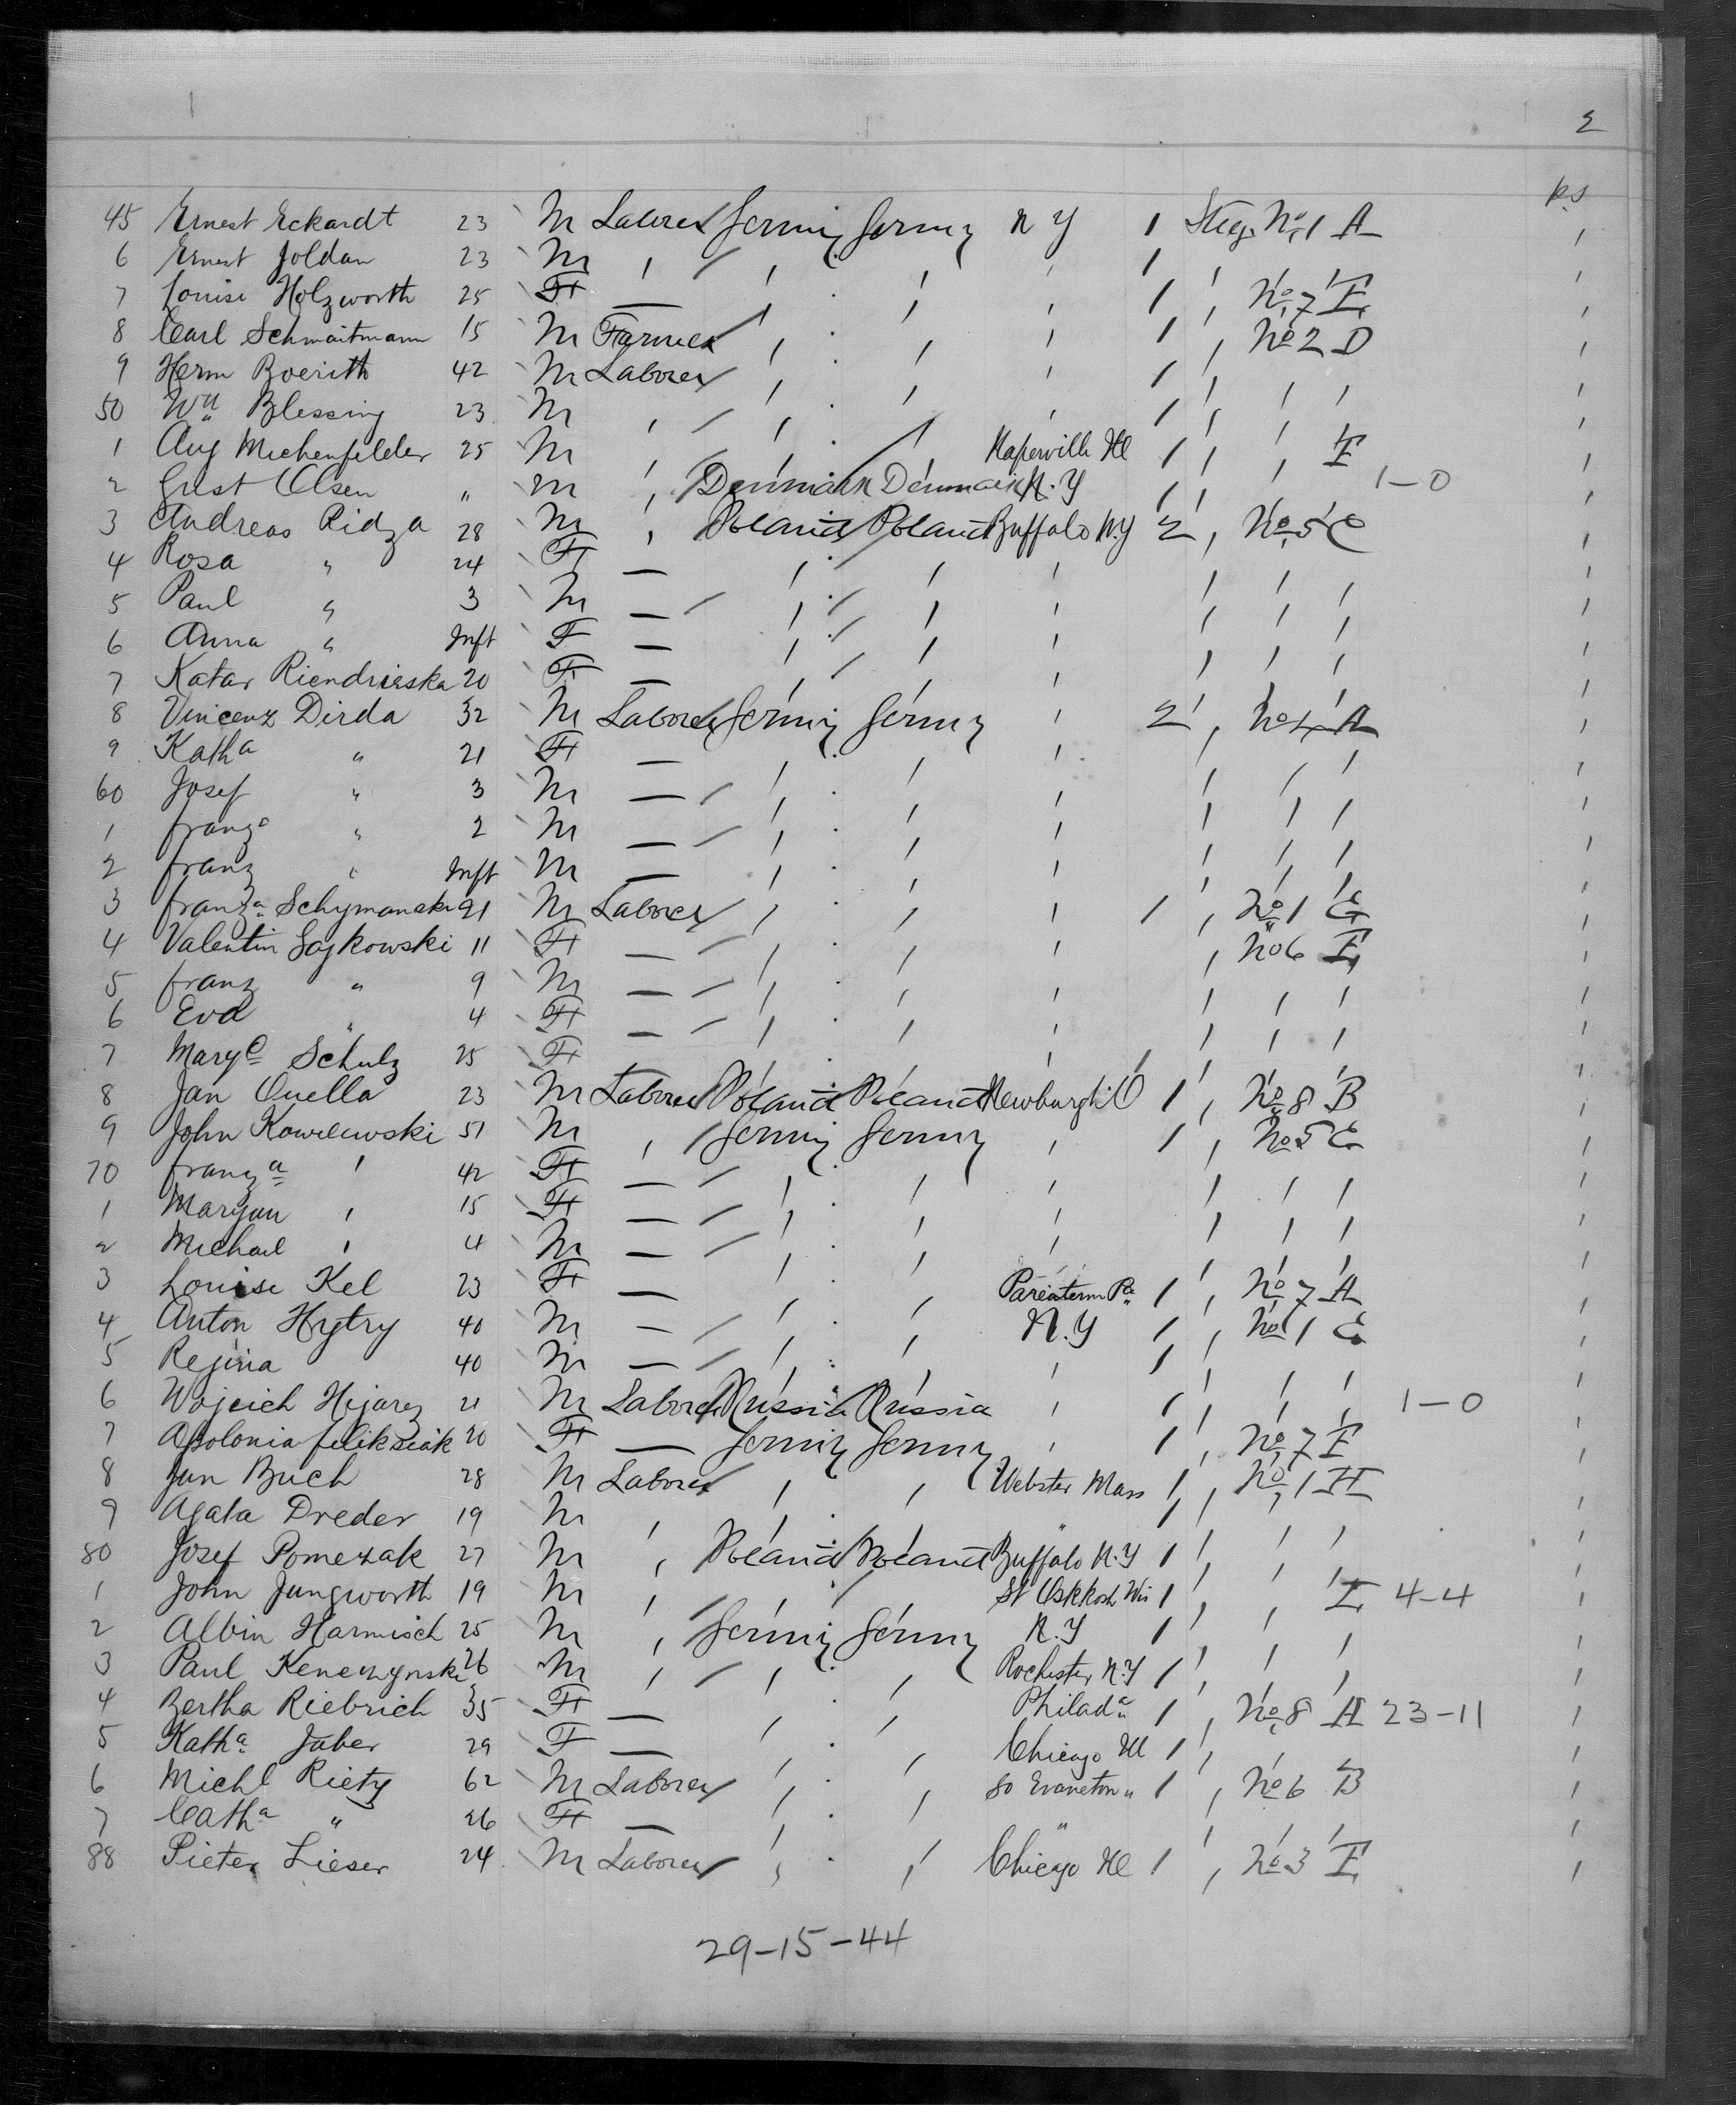 2
ps
45 Ernest Eckardt 23 M Laborer Germy Germy N Y 1 Steg. No 1 A
6 Ernest Joldan 23 M " " " " 1 "
7 Louise Holzworth 25 F — " " " 1 " No 7 E
8 Carl Schmaitmann 15 M Farmer " " " 1 " No 2 D
9 Herm Boerith 42 M Laborer " " " 1 " " "
50 Wm Blessing 23 M " " " " 1 " " "
1 Aug Michenfelder 25 M " " " Naperville Ill 1 " " E
2 Gust Olsen " M " Denmark Denmark N.Y 1 " 1-0
3 Andreas Ridza 28 M " Poland Poland Buffalo N.Y 2 " No 5 C
4 Rosa " 24 F — " " " " " "
5 Paul " 3 M — " " " " " "
6 Anna " Inft F — " " " " " "
7 Katar Riendrieska 20 F — " " " " " "
8 Vincenz Dirda 32 M Laborer Germy Germy " 2 " No 4 A
9 Katha " 21 F — " " " " " "
60 Josef " 3 M — " " " " " "
1 Franza " 2 M — " " " " " "
2 Franz " Inft M — " " " " " "
3 Franza Schymanski 21 M Laborer " " " 1 " No 1 E
4 Valentin Gajkowski 11 F — " " " " No 6 E
5 Franz " 9 M — " " " " " "
6 Eva " 4 F — " " " " " "
7 Mary Schulz 25 F — " " " 1 " " "
8 Jan Quella 23 M Laborer Poland Poland Newburgh O 1 " No 8 B
9 John Kowelewski 51 M " Germy Germy " 1 " No 5 E
70 Franza " 42 F — " " " " " "
1 Maryan " 15 F — " " " " " "
2 Michael " 4 M — " " " " " "
3 Louise Kel 23 F — " " 1 " No 7 A
4 Anton Hytry 40 M — " " N.Y 1 " No 1 E
5 Regina 40 M — " " " 1 " " "
6 Wojcich Hejarez 21 M Laborer Russia Russia " 1 " " " 1-0
7 Apolonia Felikziak 20 F — Germy Germy " 1 " No 7 E
8 Jan Buch 28 M Laborer " " Webster Mass 1 " No 1 H
9 Agata Dreder 19 M " " " " 1 " " "
80 Josef Pomezak 27 M " Poland Poland Buffalo N.Y 1 " " "
1 John Jungworth 19 M " " " St Oskkosh Wis 1 " " E 4-4
2 Albin Harmisch 25 M " Germy Germy N.Y 1 " " "
3 Paul Kenezynski 26 M " " " Rochester N.Y 1 " " "
4 Bertha Riebrich 35 F — " " Philada 1 " No 8 A 23-11
5 Katha Jaber 29 F — " " Chicago Ill 1 "
6 Michl Riety 62 M Laborer " " So Evanston " 1 " No 6 B
7 Catha " 26 F — " " " " " "
88 Pieter Lieser 24 M Laborer " " Chicago Ill 1 " No 3 E
29-15-44